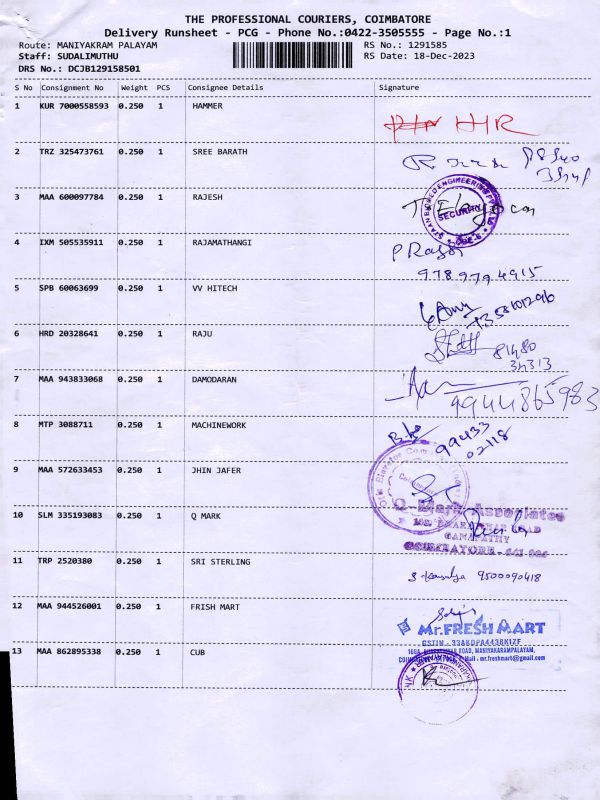 THE PROFESSIONAL COURIERS, COIMBATORE
Delivery Runsheet - PCG - Phone No.:0422-3505555 - Page No.:1
Route: MANIYAKRAM PALAYAM
RS No.: 1291585
Staff: SUDALIMUTHU
RS Date: 18-Dec-2023
DRS No.: DCJB129158501
S No Consignment No Weight PCS Consignee Details Signature
1 KUR 7000558593 0.250 1 HAMMER
HR
2 TRZ 325473761 0.250 1 SREE BARATH
3 MAA 600097784 0.250 1 RAJESH
SECURITY
4 IXM 505535911 0.250 1 RAJAMATHANGI
9789794915
5 SPB 60063699 0.250 1 VV HITECH
6 HRD 20328641 0.250 1 RAJU
7 MAA 943833068 0.250 1 DAMODARAN
9944865983
8 MTP 3088711 0.250 1 MACHINEWORK
99433
02118
9 MAA 572633453 0.250 1 JHIN JAFER
10 SLM 335193083 0.250 1 Q MARK
Q-Mark Associates
GANAPATHY
11 TRP 2520380 0.250 1 SRI STERLING
9500090418
12 MAA 944526001 0.250 1 FRISH MART
Mr.FRESH MART
13 MAA 862895338 0.250 1 CUB